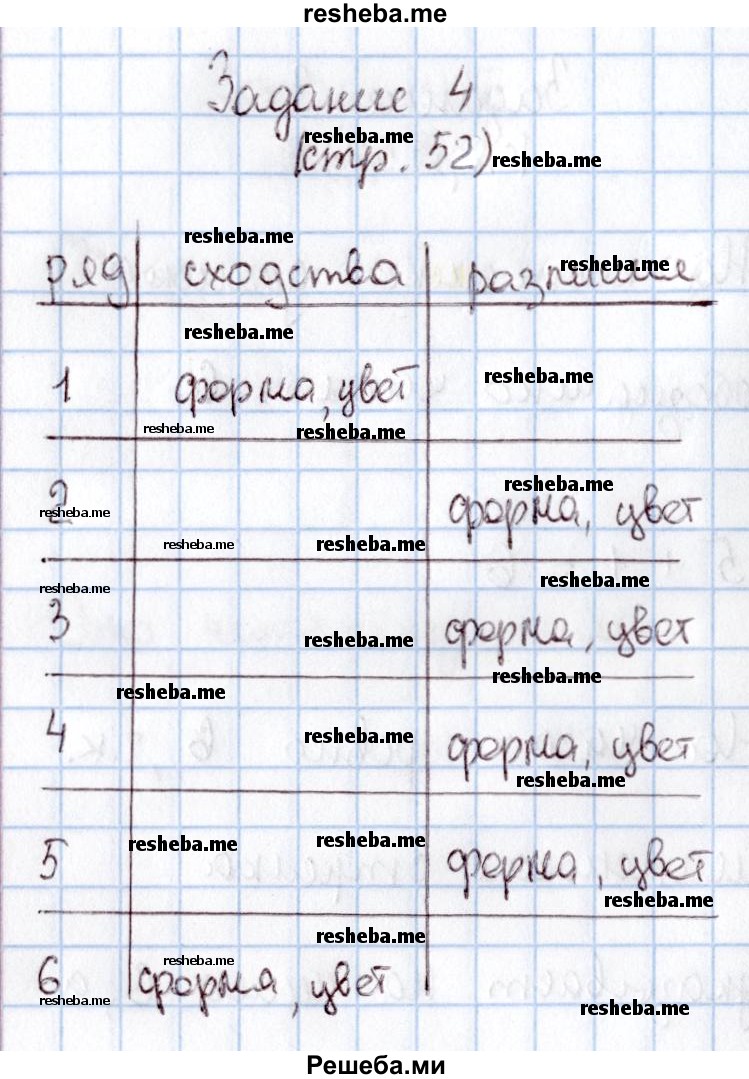 resheba.me
Задание 4
resheba.me
(стр. 52) resheba.me
resheba.me
ряд сходства различие
resheba.me
resheba.me
resheba.me
1 форма, цвет
resheba.me resheba.me
resheba.me
2 форма, цвет
resheba.me
resheba.me resheba.me
resheba.me
resheba.me
3 форма, цвет
resheba.me
resheba.me
resheba.me
4 форма, цвет
resheba.me
resheba.me
resheba.me resheba.me
5 форма, цвет
resheba.me
resheba.me
resheba.me
6 форма, цвет
resheba.me
resheba.me
Решеба.ми